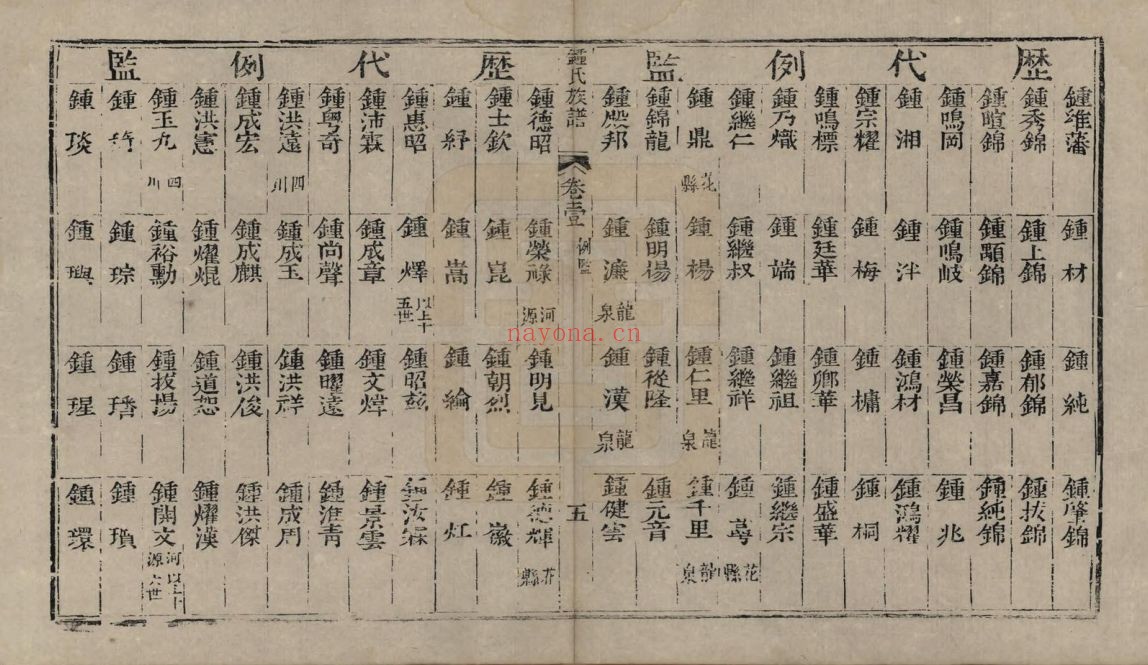 歷代例監
鍾維藩 鍾材 鍾純 鍾肇錦
鍾秀錦 鍾上錦 鍾郁錦 鍾拔錦
鍾暄錦 鍾顯錦 鍾嘉錦 鍾純錦
鍾鳴岡 鍾鳴岐 鍾榮昌 鍾兆
鍾湘 鍾泮 鍾鴻材 鍾鴻耀
鍾宗耀 鍾梅 鍾槦 鍾桐
鍾鳴標 鍾廷華 鍾卿華 鍾盛華
鍾乃熾 鍾端 鍾繼祖 鍾繼宗
鍾繼仁 鍾繼叔 鍾繼祥 鍾 花縣
鍾鼎 花縣 鍾楊 鍾仁里 龍泉 鍾千里 龍泉
鍾錦龍 鍾明揚 鍾從隆 鍾元音
鍾殿邦 鍾濂 龍泉 鍾漢 龍泉 鍾健雲
鍾氏族譜 卷壹 例監 五
歷代例監
鍾德昭 鍾榮祿 河源 鍾明見 鍾德輝 花縣
鍾士欽 鍾崑 鍾朝烈 鍾徽
鍾紓 鍾嵩 鍾綸 鍾灴
鍾惠昭 鍾燡 以上十五世 鍾昭彭 鍾汝霖
鍾沛霖 鍾成章 鍾文煒 鍾景雲
鍾粵奇 鍾尚聲 鍾曜遠 鍾淮青
鍾洪遠 四川 鍾成玉 鍾洪祥 鍾成周
鍾成宏 鍾成麒 鍾洪俊 鍾洪傑
鍾洪憲 鍾燿焜 鍾道恕 鍾燿漢
鍾玉九 四川 鍾裕勳 鍾拔揚 鍾開文 河源 以上十六世
鍾 鍾琮 鍾璔 鍾瑣
鍾琰 鍾璵 鍾瑆 鍾環
nayona.cn